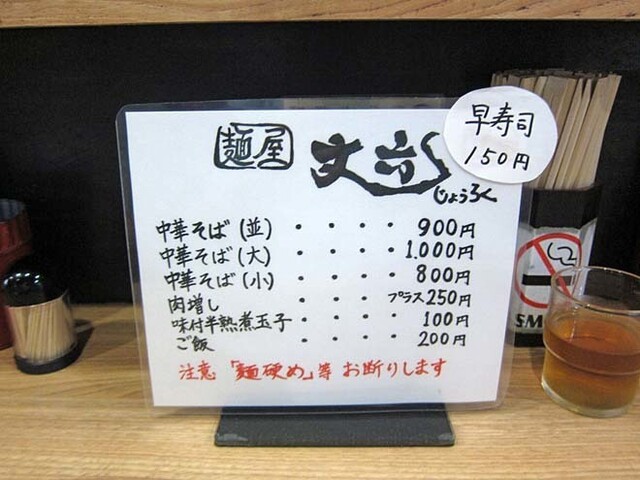 麺屋 丈六
じょうろく
早寿司
150円
中華そば(並)・・・・900円
中華そば(大)・・・・1.000円
中華そば(小)・・・・800円
肉増し・・・・プラス250円
味付半熟煮玉子・・・・100円
ご飯・・・・200円
注意 「麺硬め」等 お断りします
SM